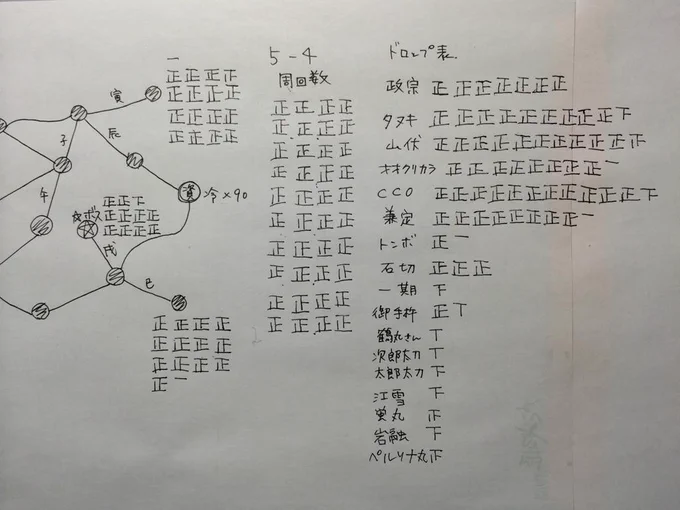 一
寅
正正正正
正正正正
正正正正
正正正正
子
辰
午
資 冷×90
ボス
正正下
正正正正
正正正正
戌
巳
正正正正
正正正正
正正正正
正一
5-4
周回数
正正正正
正正正正
正正正正
正正正正
正正正正
正正正正
正正正正
正正正正
正正正正
正正正正
ドロップ表
政宗 正正正正正正
タヌキ 正正正正正正正正正下
山伏 正正正正正正正正正正
オオクリカラ 正正正正正正正一
CCO 正正正正正正正正正正下
兼定 正正正正正正正一
トンボ 正一
石切 正正正
一期 下
御手杵 正丅
鶴丸さん 丅
次郎太刀 丅
太郎太刀 下
江雪 下
蛍丸 正
岩融 下
ペルリナ丸 正